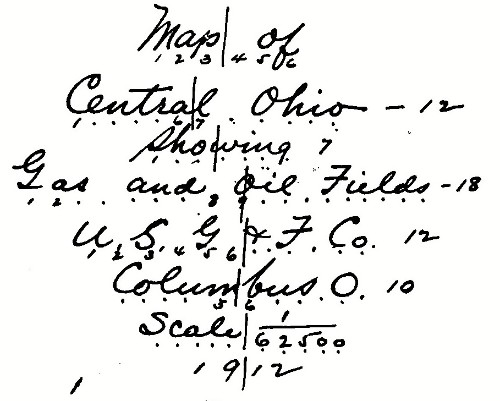 Map of
1 2 3 4 5 6
Central Ohio - 12
6 7
Showing 7
Gas and Oil Fields - 18
2 8 9
U. S. G & F. Co. 12
1 2 3 4 5 6
Columbus O. 10
5 6
Scale 1/62500
1912